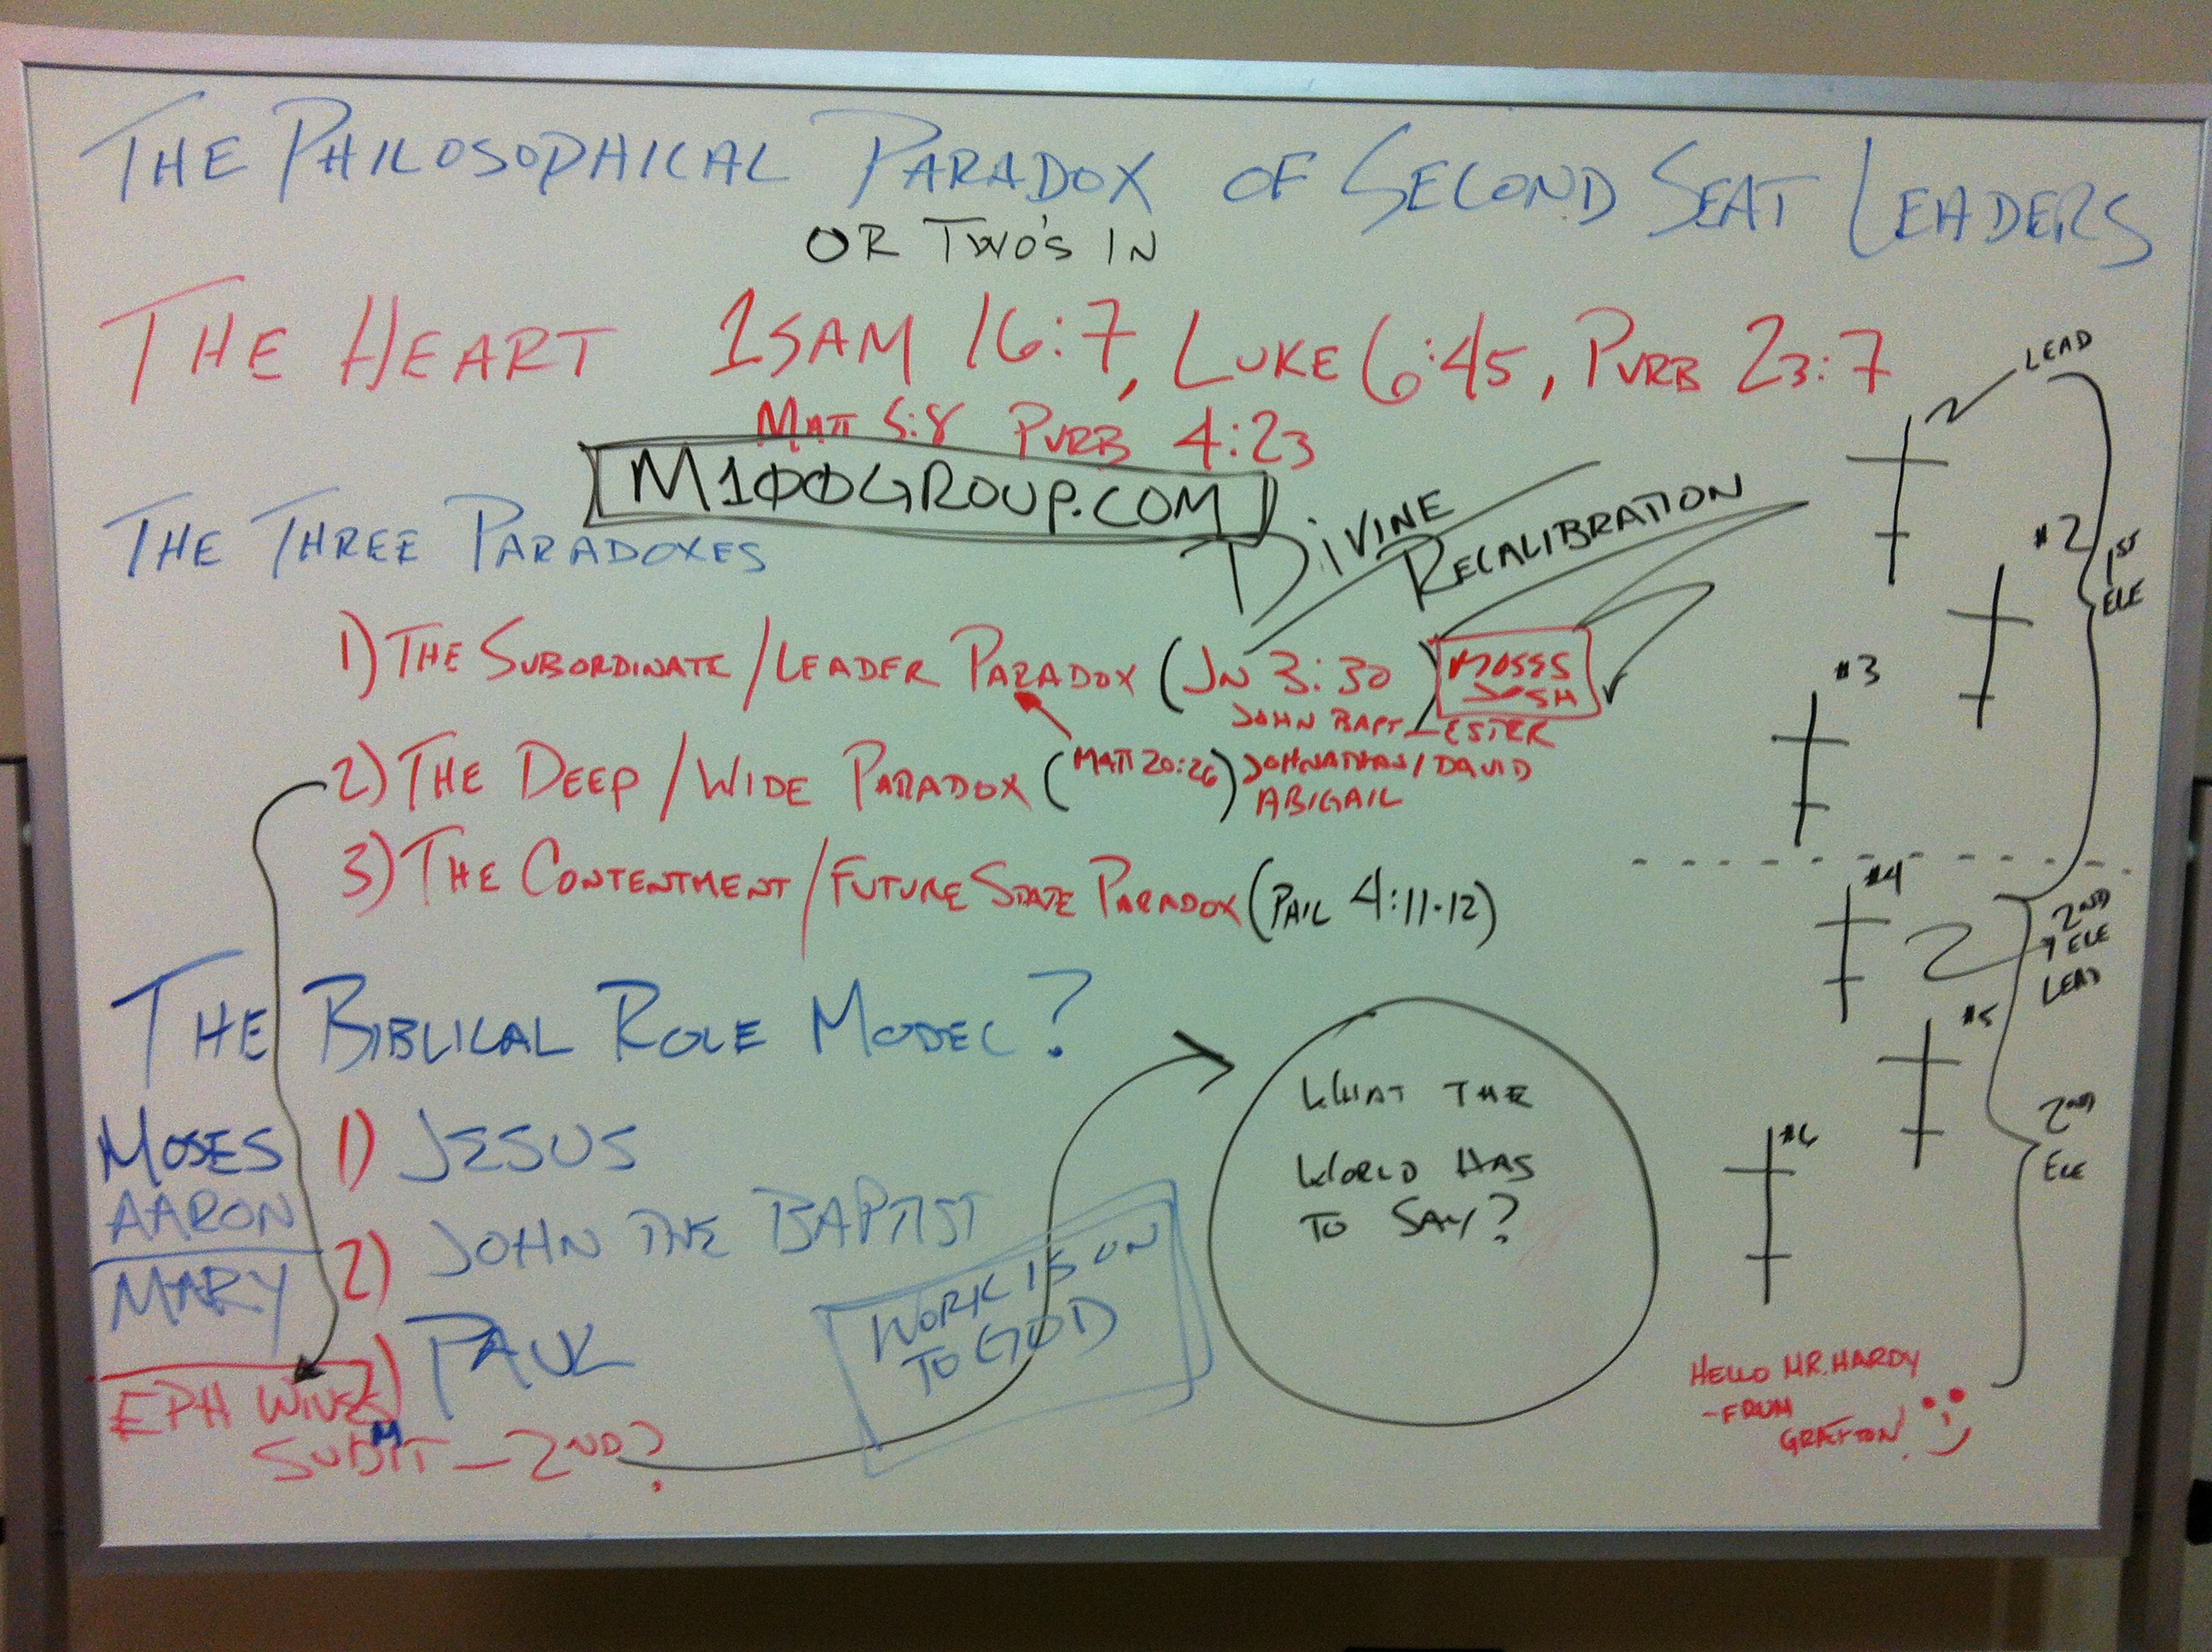 THE PHILOSOPHICAL PARADOX OF SECOND SEAT LEADERS
OR TWO'S IN
THE HEART 1SAM 16:7, LUKE 6:45, PVRB 23:7
MATT 5:8 PVRB 4:23
M100GROUP.COM
DIVINE
RECALIBRATION
THE THREE PARADOXES
1) THE SUBORDINATE / LEADER PARADOX (JN 3:30)
MOSES
JOSH
JOHN BAPT - ESTER
2) THE DEEP / WIDE PARADOX (MATT 20:26) JOHNATHAN / DAVID
ABIGAIL
3) THE CONTENTMENT / FUTURE STATE PARADOX (PHIL 4:11-12)
THE BIBLICAL ROLE MODEL?
MOSES
AARON
MARY
1) JESUS
2) JOHN THE BAPTIST
3) PAUL
EPH WIVES
SUBMIT - 2ND?
WORK IS UN
TO GOD
WHAT THE
WORLD HAS
TO SAY?
LEAD
#2
1ST
ELE
#3
#4
2
2ND
ELE
LEAD
#5
2ND
ELE
#6
HELLO MR. HARDY
-FROM
GRAFTON!